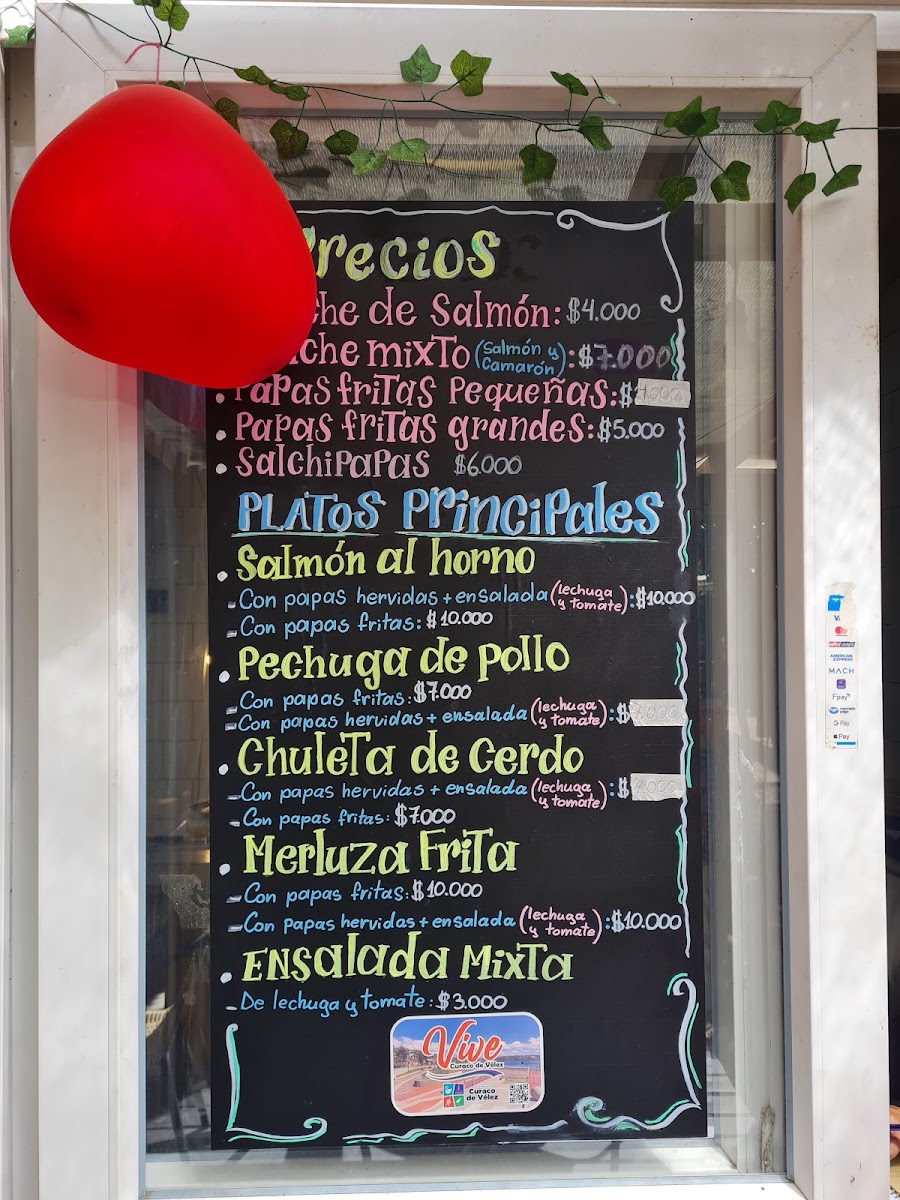 Precios
che de Salmón: $4.000
iche mixto (Salmón y Camarón): $7.000
Papas fritas Pequeñas: $
Papas fritas grandes: $5.000
Salchipapas $6.000
Platos Principales
Salmón al horno
- Con papas hervidas + ensalada (lechuga y tomate): $10.000
- Con papas fritas: $10.000
Pechuga de pollo
- Con papas fritas: $7.000
- Con papas hervidas + ensalada (lechuga y tomate): $
Chuleta de Cerdo
- Con papas hervidas + ensalada (lechuga y tomate): $7.000
- Con papas fritas: $7.000
Merluza Frita
- Con papas fritas: $10.000
- Con papas hervidas + ensalada (lechuga y tomate): $10.000
Ensalada Mixta
- De lechuga y tomate: $3.000
Vive
Curaco de Vélez
Curaco
de Vélez
AMERICAN EXPRESS
MACH
Fpay
G Pay
Pay